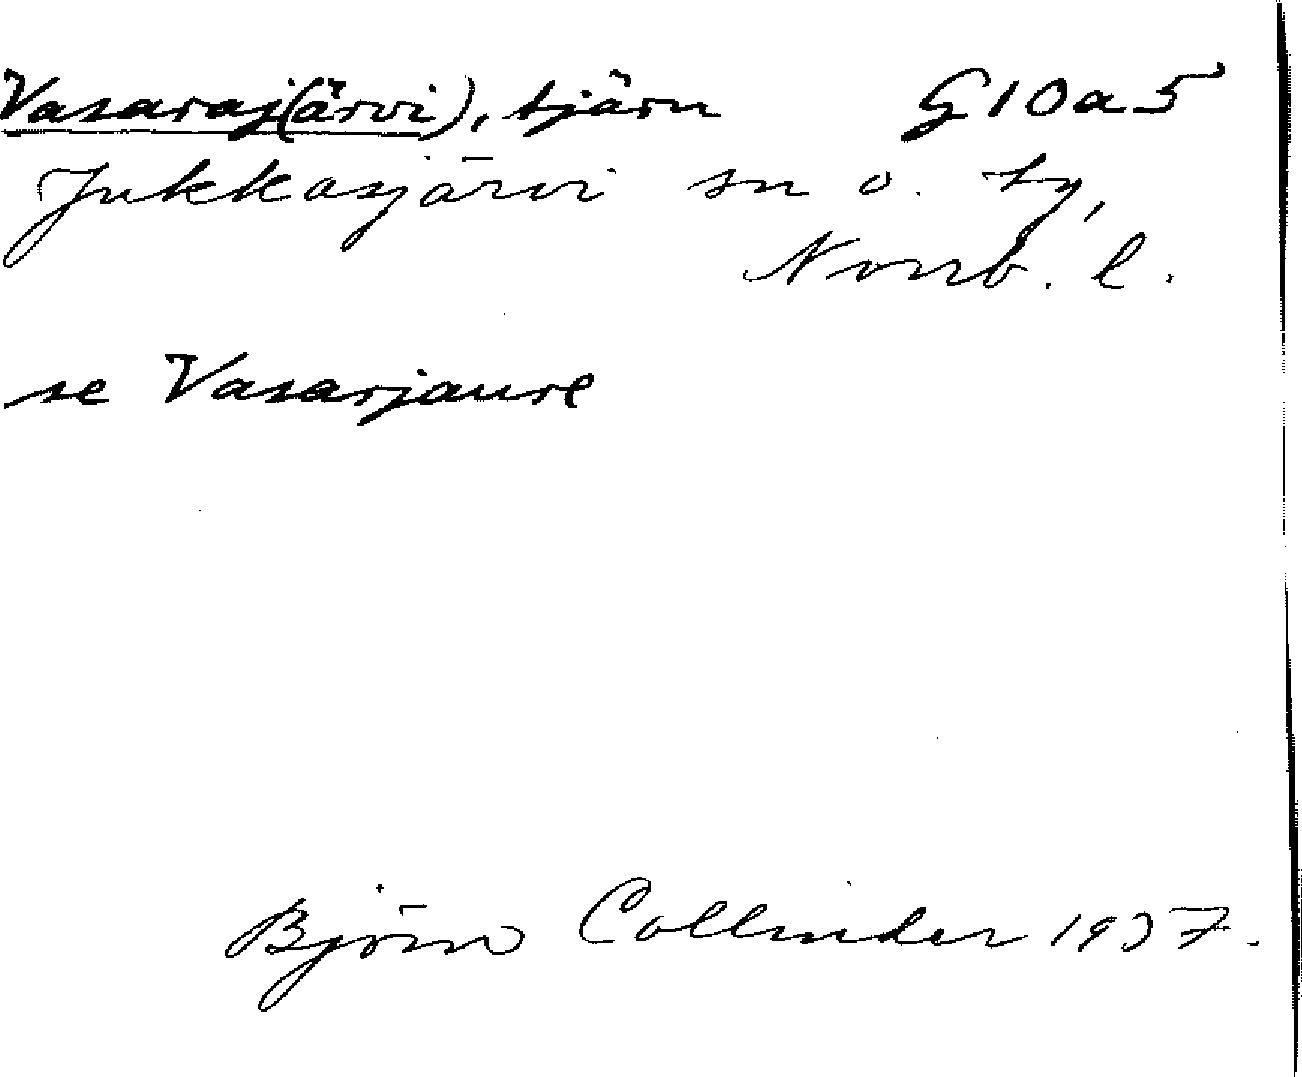 Vasaraj(ärvi), tjärn G10a5
Jukkasjärvi sn o. tg,
Norrb. l.
se Vasarjaure
Björn Collinder 1937.